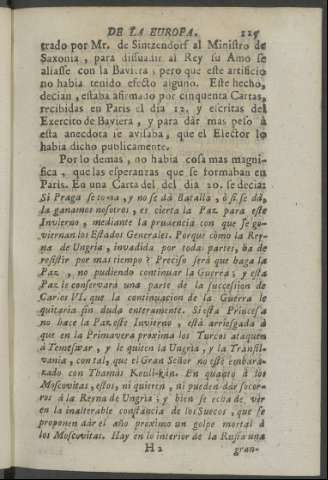 DE LA EUROPA. 225
trado por Mr. de Sintzendorf al Ministro de
Saxonia, para dissuadir al Rey su Amo se
aliasse con la Baviera; pero que este artificio
no habia tenido efecto alguno. Este hecho,
decian, estaba afirmado por cinquenta Cartas,
recibidas en Paris el dia 22. y escritas del
Exercito de Baviera, y para dár mas peso à
esta anecdota se avisaba, que el Elector lo
habia dicho publicamente.
Por lo demas, no habia cosa mas magni-
fica, que las esperanzas que se formaban en
Paris. En una Carta del dia 20. se decia:
Si Praga se toma, y no se dà Batalla, ò si se dà,
la ganamos nosotros, es cierta la Paz para este
Invierno, mediante la prudencia con que se go-
viernan los Estados Generales. Porque como la Rey-
na de Ungria, invadida por todas partes, ha de
resistir por mas tiempo? Preciso serà que haga la
Paz, no pudiendo continuar la Guerra; y esta
Paz le conservarà una parte de la succession de
Carlos VI. que la continuacion de la Guerra le
quitaria sin duda enteramente. Si esta Princesa
no hace la Paz este Invierno, està arriesgada à
que en la Primavera proxima los Turcos ataquen
à Temeswar, y le quiten la Ungria, y la Transil-
vania, con tal, que el Gran Señor no estè embara-
zado con Thamàs Kouli-kàn. En quanto à los
Moscovitas, estos, ni quieren, ni pueden dàr socor-
ros à la Reyna de Ungria; y bien se echa de ver
en la inalterable constancia de los Suecos, que se
proponen dàr el año proximo un golpe mortal à
los Moscovitas. Hay en lo interior de la Rusia una
H 2 gran-